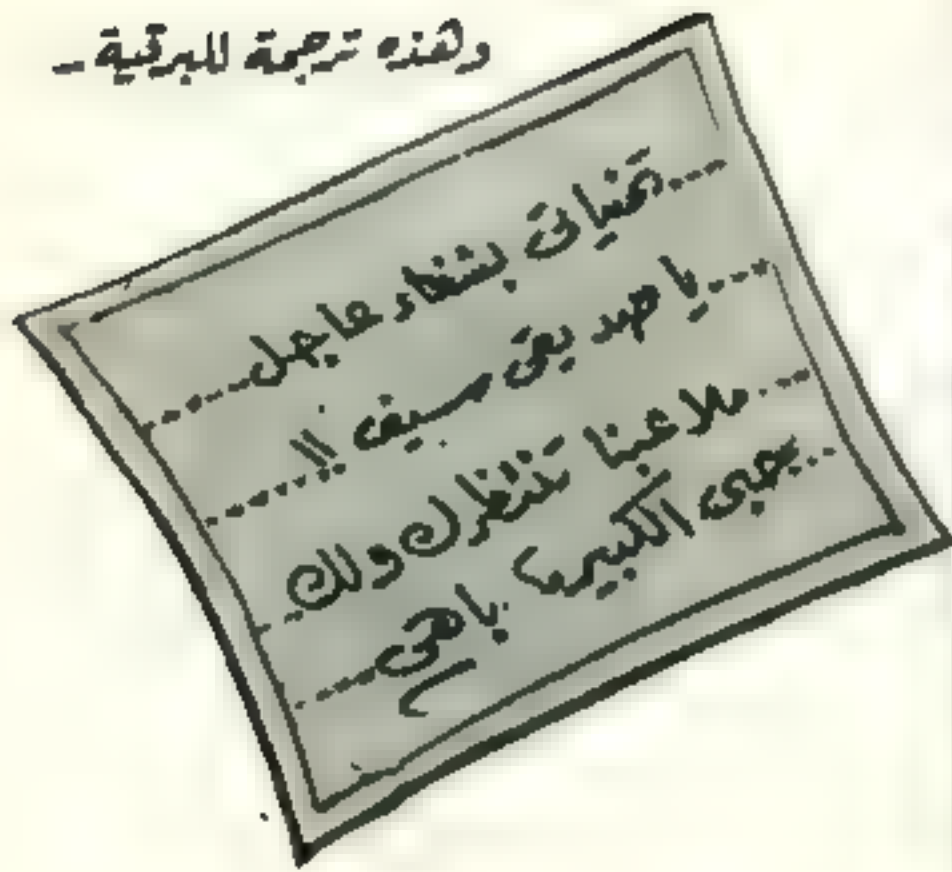 وهذه ترجمة للبرقية -
تمنياتى بشفاء عاجل
يا صديقى سيف !!
ملاعبنا تنتظرك ولك
حبى الكبير، باهى